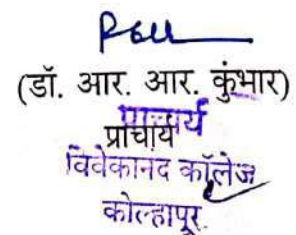 (डॉ. आर. आर. कुंभार)
प्राचार्य
प्राचार्य
विवेकानंद कॉलेज
कोल्हापूर.